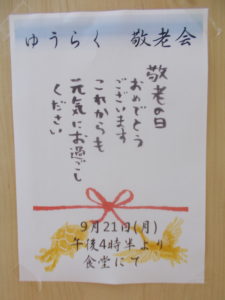 ゆうらく 敬老会
敬老の日
おめでとう
ございます
これからも
元気にお過ごし
ください
9月21日(月)
午後4時半より
食堂にて